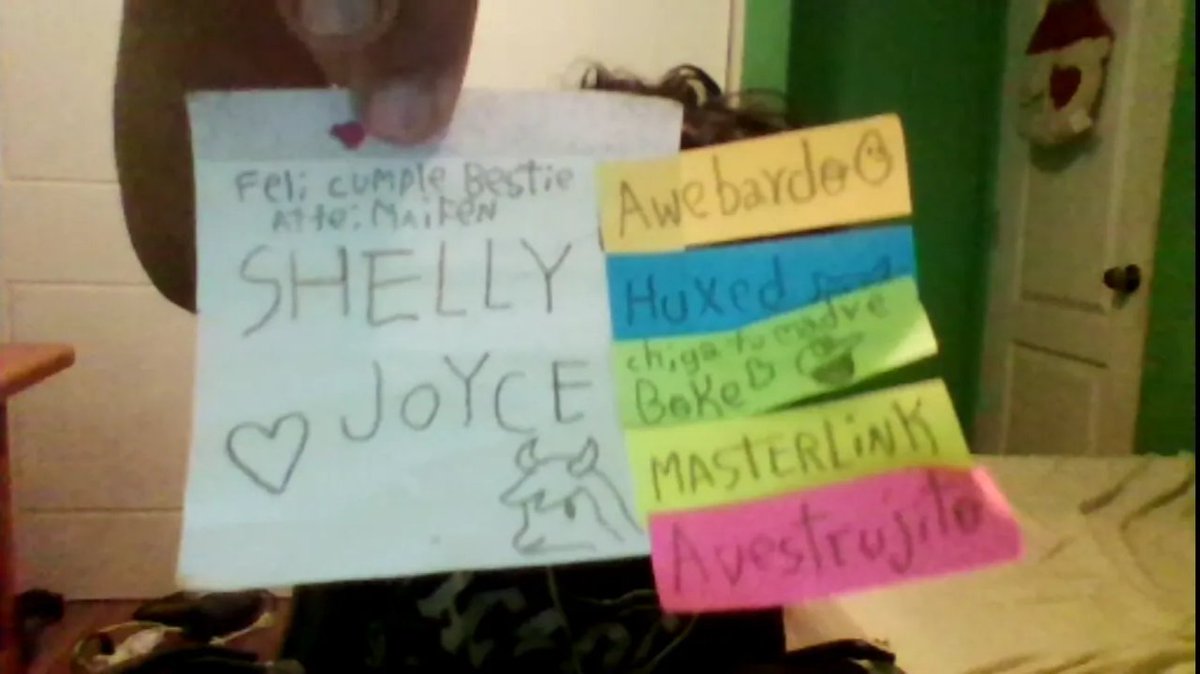 Feli cumple Bestie
Atte: Maifen
SHELLY
JOYCE
Awebardo
Huxed
chiga tu madre
Boke
MASTERLiNK
Avestrujito